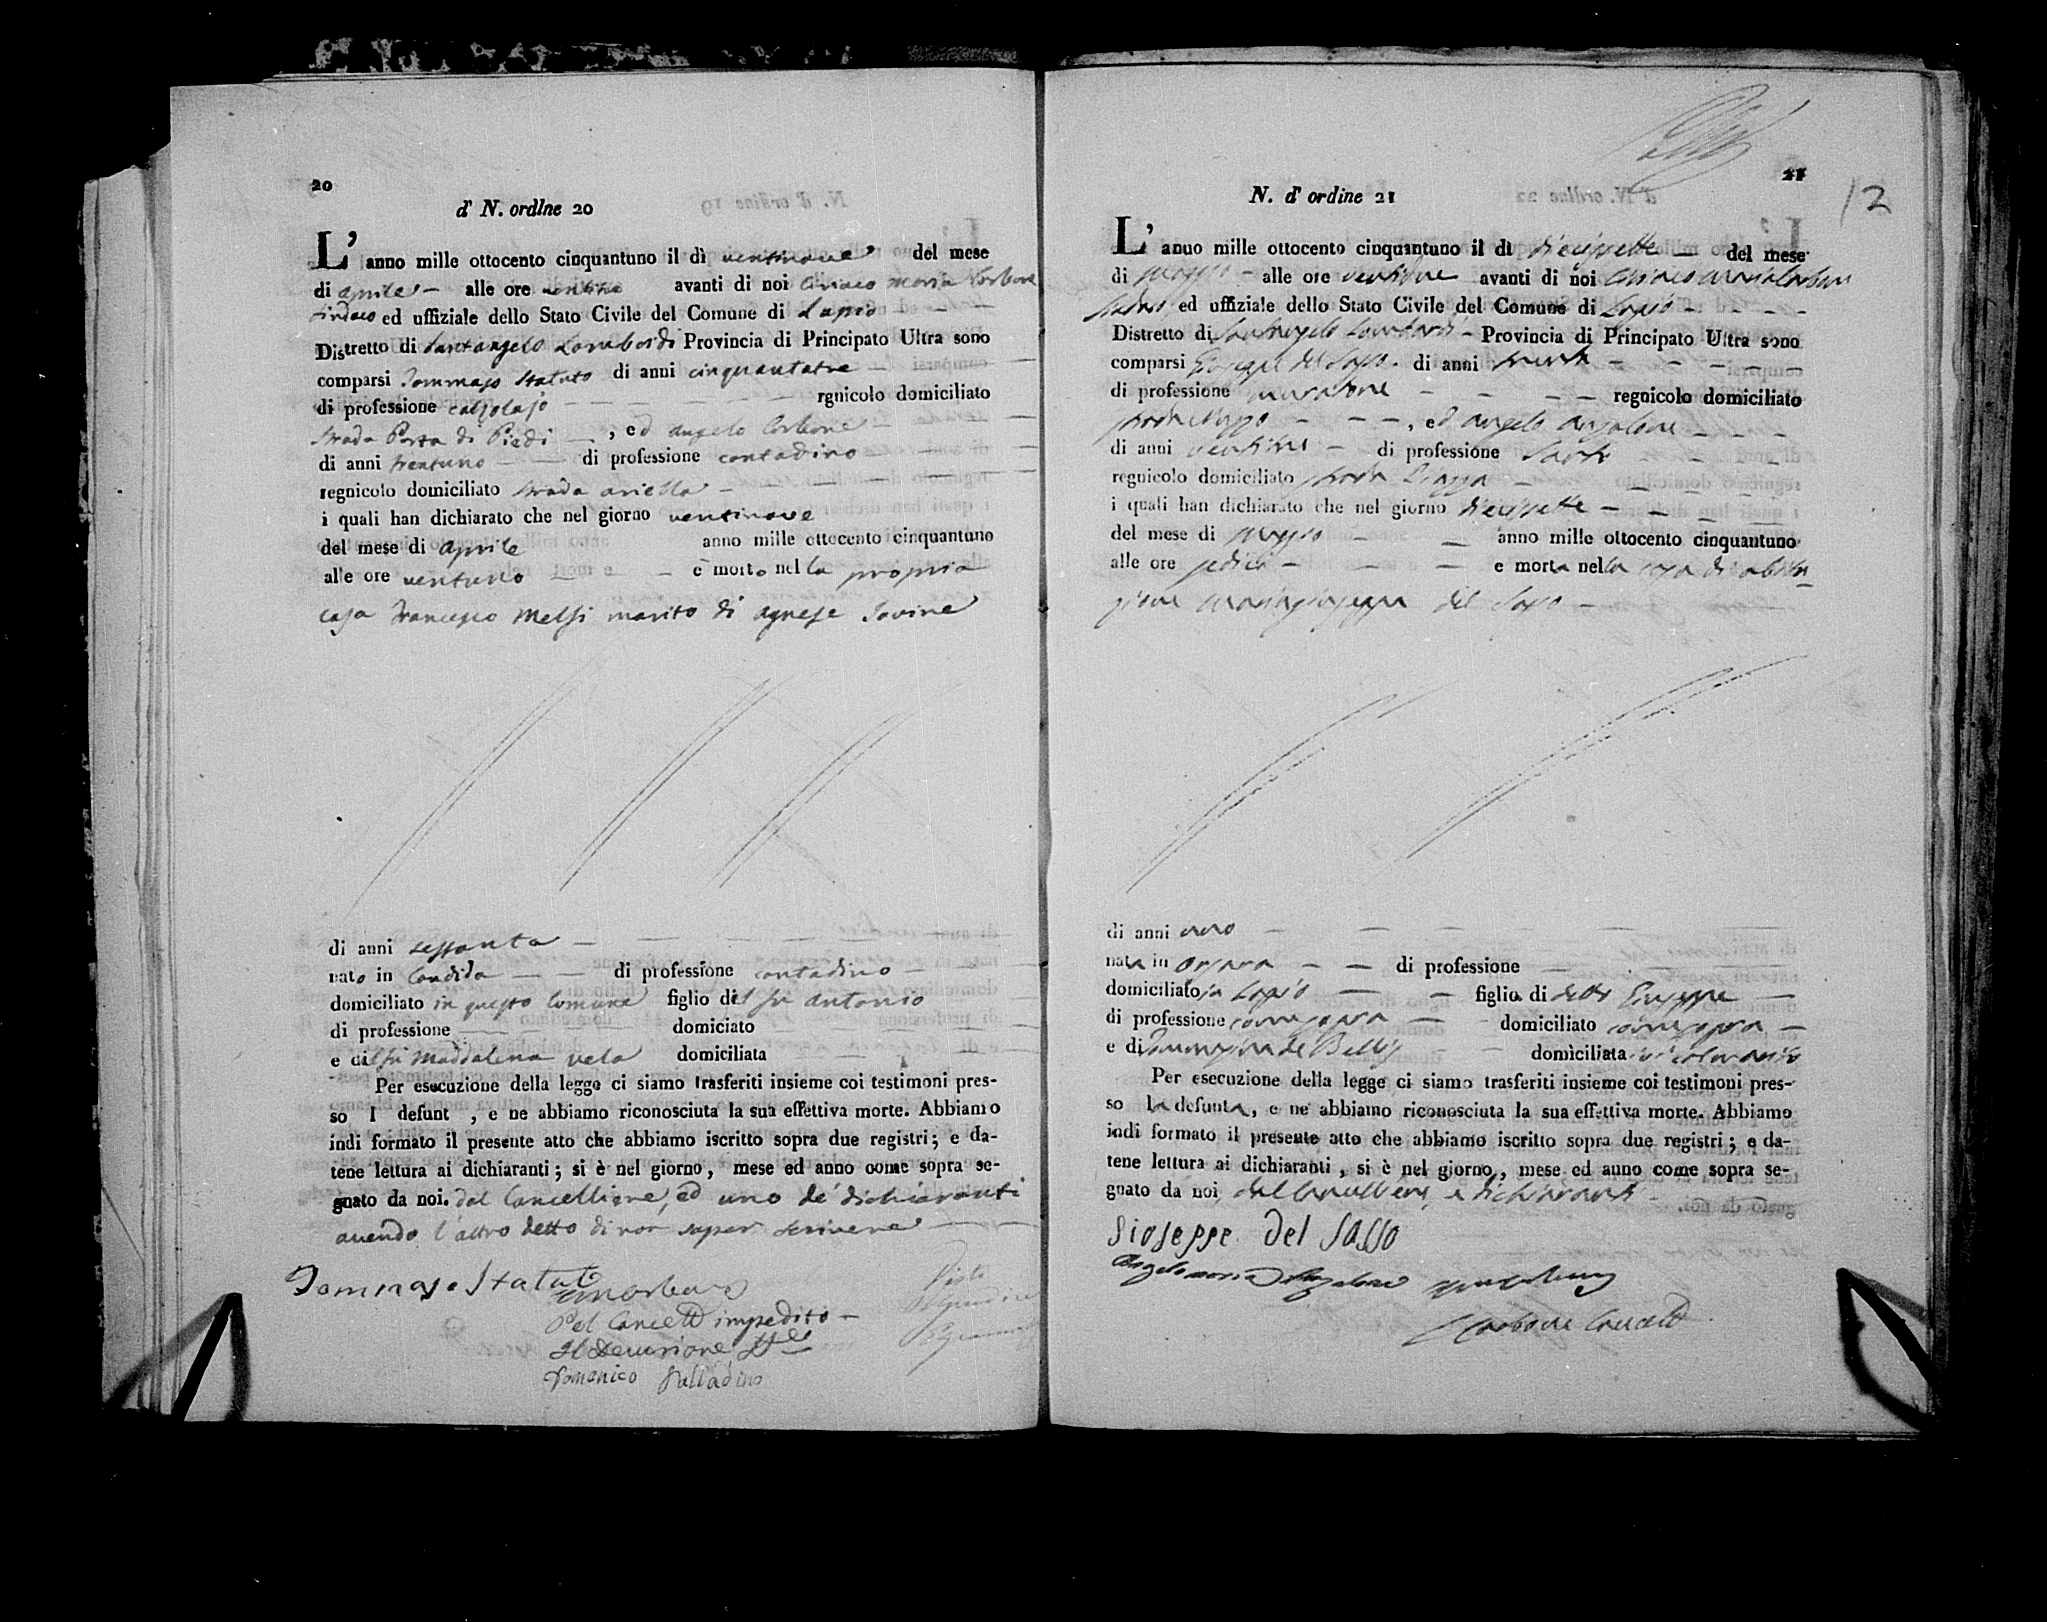 20
d' N. ordlne 20
L' anno mille ottocento cinquantuno il dì ventinove del mese
di aprile alle ore avanti di noi Ciriaco Maria Carbone
Sindaco ed uffiziale dello Stato Civile del Comune di Lapio
Distretto di Santangelo Lombardi Provincia di Principato Ultra sono
comparsi Tommaso Statuto di anni cinquantatre
di professione calzolajo rgnicolo domiciliato
strada Porta di Piedi , ed angelo Carbone
di anni trentuno di professione contadino
regnicolo domiciliato strada ariella
i quali han dichiarato che nel giorno ventinove
del mese di aprile anno mille ottocento cinquantuno
alle ore ventuno è morto nella propria
casa Francesco Melsi marito di agnese Iovine
di anni sessanta
nato in Candida di professione contadino
domiciliato in questo Comune figlio del fu antonio
di professione domiciato
e di fu Maddalena vela domiciliata
Per esecuzione della legge ci siamo trasferiti insieme coi testimoni pres-
so l defunt , e ne abbiamo riconosciuta la sua effettiva morte. Abbiamo
indi formato il presente atto che abbiamo iscritto sopra due registri; e da-
tene lettura ai dichiaranti; si è nel giorno, mese ed anno come sopra se-
gnato da noi. dal Cancelliere, ed uno de' dichiaranti
avendo l'altro detto di non saper scrivere
Tommaso Statuto
Pel Cancell impedito
Il Decurione
Domenico Palladino
Visto
21
12
N. d' ordine 21
L' anno mille ottocento cinquantuno il dì diecissette del mese
di maggio alle ore ventidue avanti di noi Ciriaco Maria Carbone
Sindaco ed uffiziale dello Stato Civile del Comune di Lapio
Distretto di Santangelo Lombardi Provincia di Principato Ultra sono
comparsi Giuseppe del Sasso di anni trenta
di professione muratore regnicolo domiciliato
, ed angelo anzalone
di anni di professione Sarto
regnicolo domiciliato strada Piazza
i quali han dichiarato che nel giorno diecissette
del mese di maggio anno mille ottocento cinquantuno
alle ore sedici e morta nella casa di abita-
zione Mariagiuseppa del Sasso
di anni uno
nata in di professione
domiciliato in Lapio figlia di detto Giuseppe
di professione come sopra domiciliato come sopra
e di de Bellis domiciliata
Per esecuzione della legge ci siamo trasferiti insieme coi testimoni pres-
so la defunta, e ne abbiamo riconosciuta la sua effettiva morte. Abbiamo
indi formato il presente atto che abbiamo iscritto sopra due registri; e da-
tene lettura ai dichiaranti, si è nel giorno, mese ed anno come sopra se-
gnato da noi, dal Cancelliere, e dichiaranti
Gioseppe del Sasso
Angelo maria Anzalone
Carbone Cancell